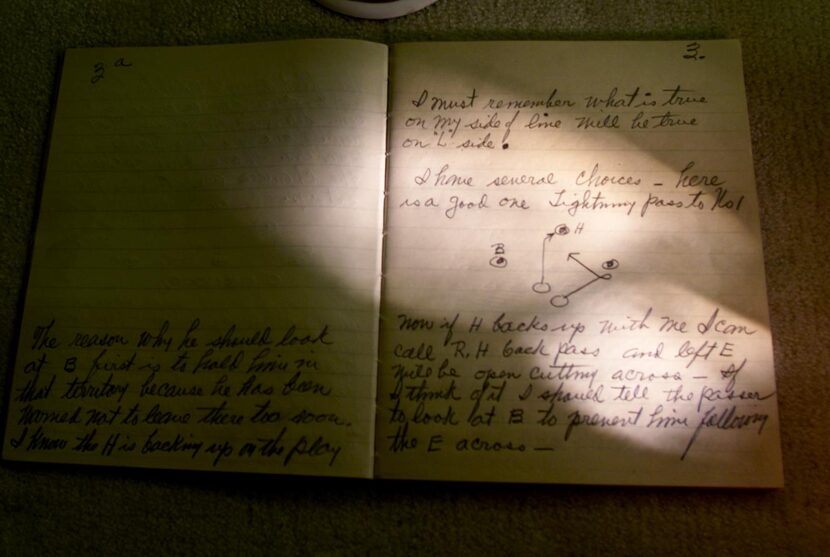 3 a
The reason why he should look
at B first is to hold him in
that territory because he has been
warned not to leave there too soon.
I know the H is backing up on the play
3.
I must remember what is true
on my side of line will be true
on "L" side.
I have several choices - here
is a good one Lightning pass to No 1
H
B
Now if H backs up with me I can
call R.H back pass and left E
will be open cutting across - If
I think of it I should tell the passer
to look at B to prevent him following
the E across -